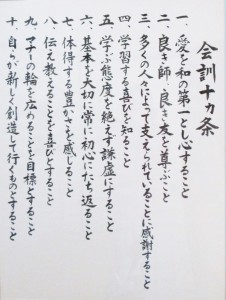 会訓十カ条
一、愛を和の第一とし心すること
二、良き師、良き友を尊ぶこと
三、多くの人々によって支えられていることに感謝すること
四、学習する喜びを知ること
五、学ぶ態度を絶えず謙虚にすること
六、基本を大切に常に初心にたち返ること
七、体得する豊かさを感じること
八、伝え教えることを喜びとすること
九、マナーの輪を広めることを目標とすること
十、自らが新しく創造して行くものとすること